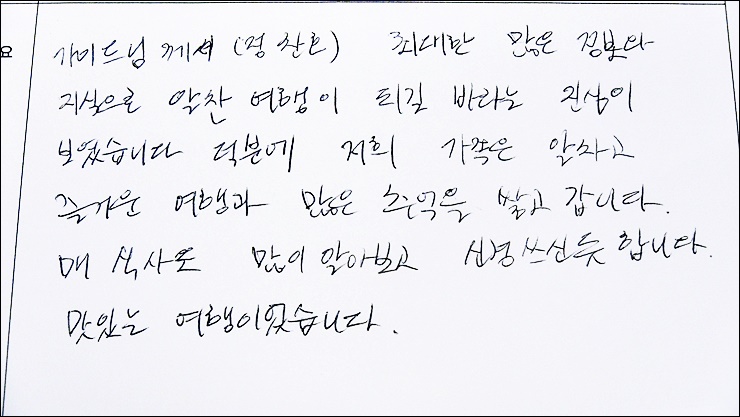 요
가이드님께서 (정찬호) 최대한 많은 정보와
지식으로 알찬 여행이 되길 바라는 진심이
보였습니다 덕분에 저희 가족은 알차고
즐거운 여행과 많은 추억을 쌓고 갑니다.
매 식사도 많이 알아보고 신경쓰신듯 합니다.
맛있는 여행이였습니다.